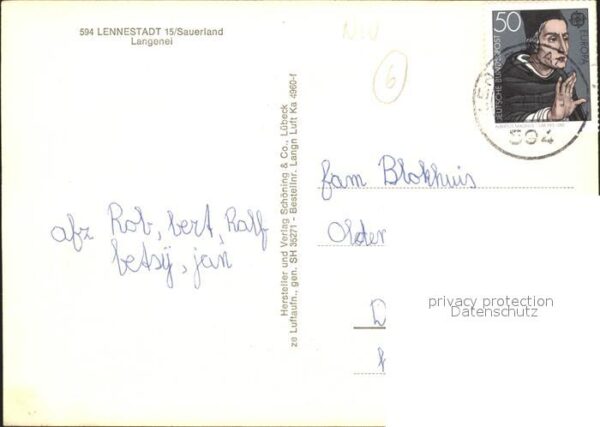 594 LENNESTADT 15/Sauerland
Langenei
NW
6
50
DEUTSCHE BUNDESPOST
EUROPA
594
Hersteller und Verlag Schöning & Co., Lübeck
ze Luftaufn., gen. SH 35271 - Bestellnr. Langn Luft Ka 4960-f
afz Rob, bert, Ralf
betsÿ, jan
fam Blokhuis
Older
D
privacy protection
Datenschutz